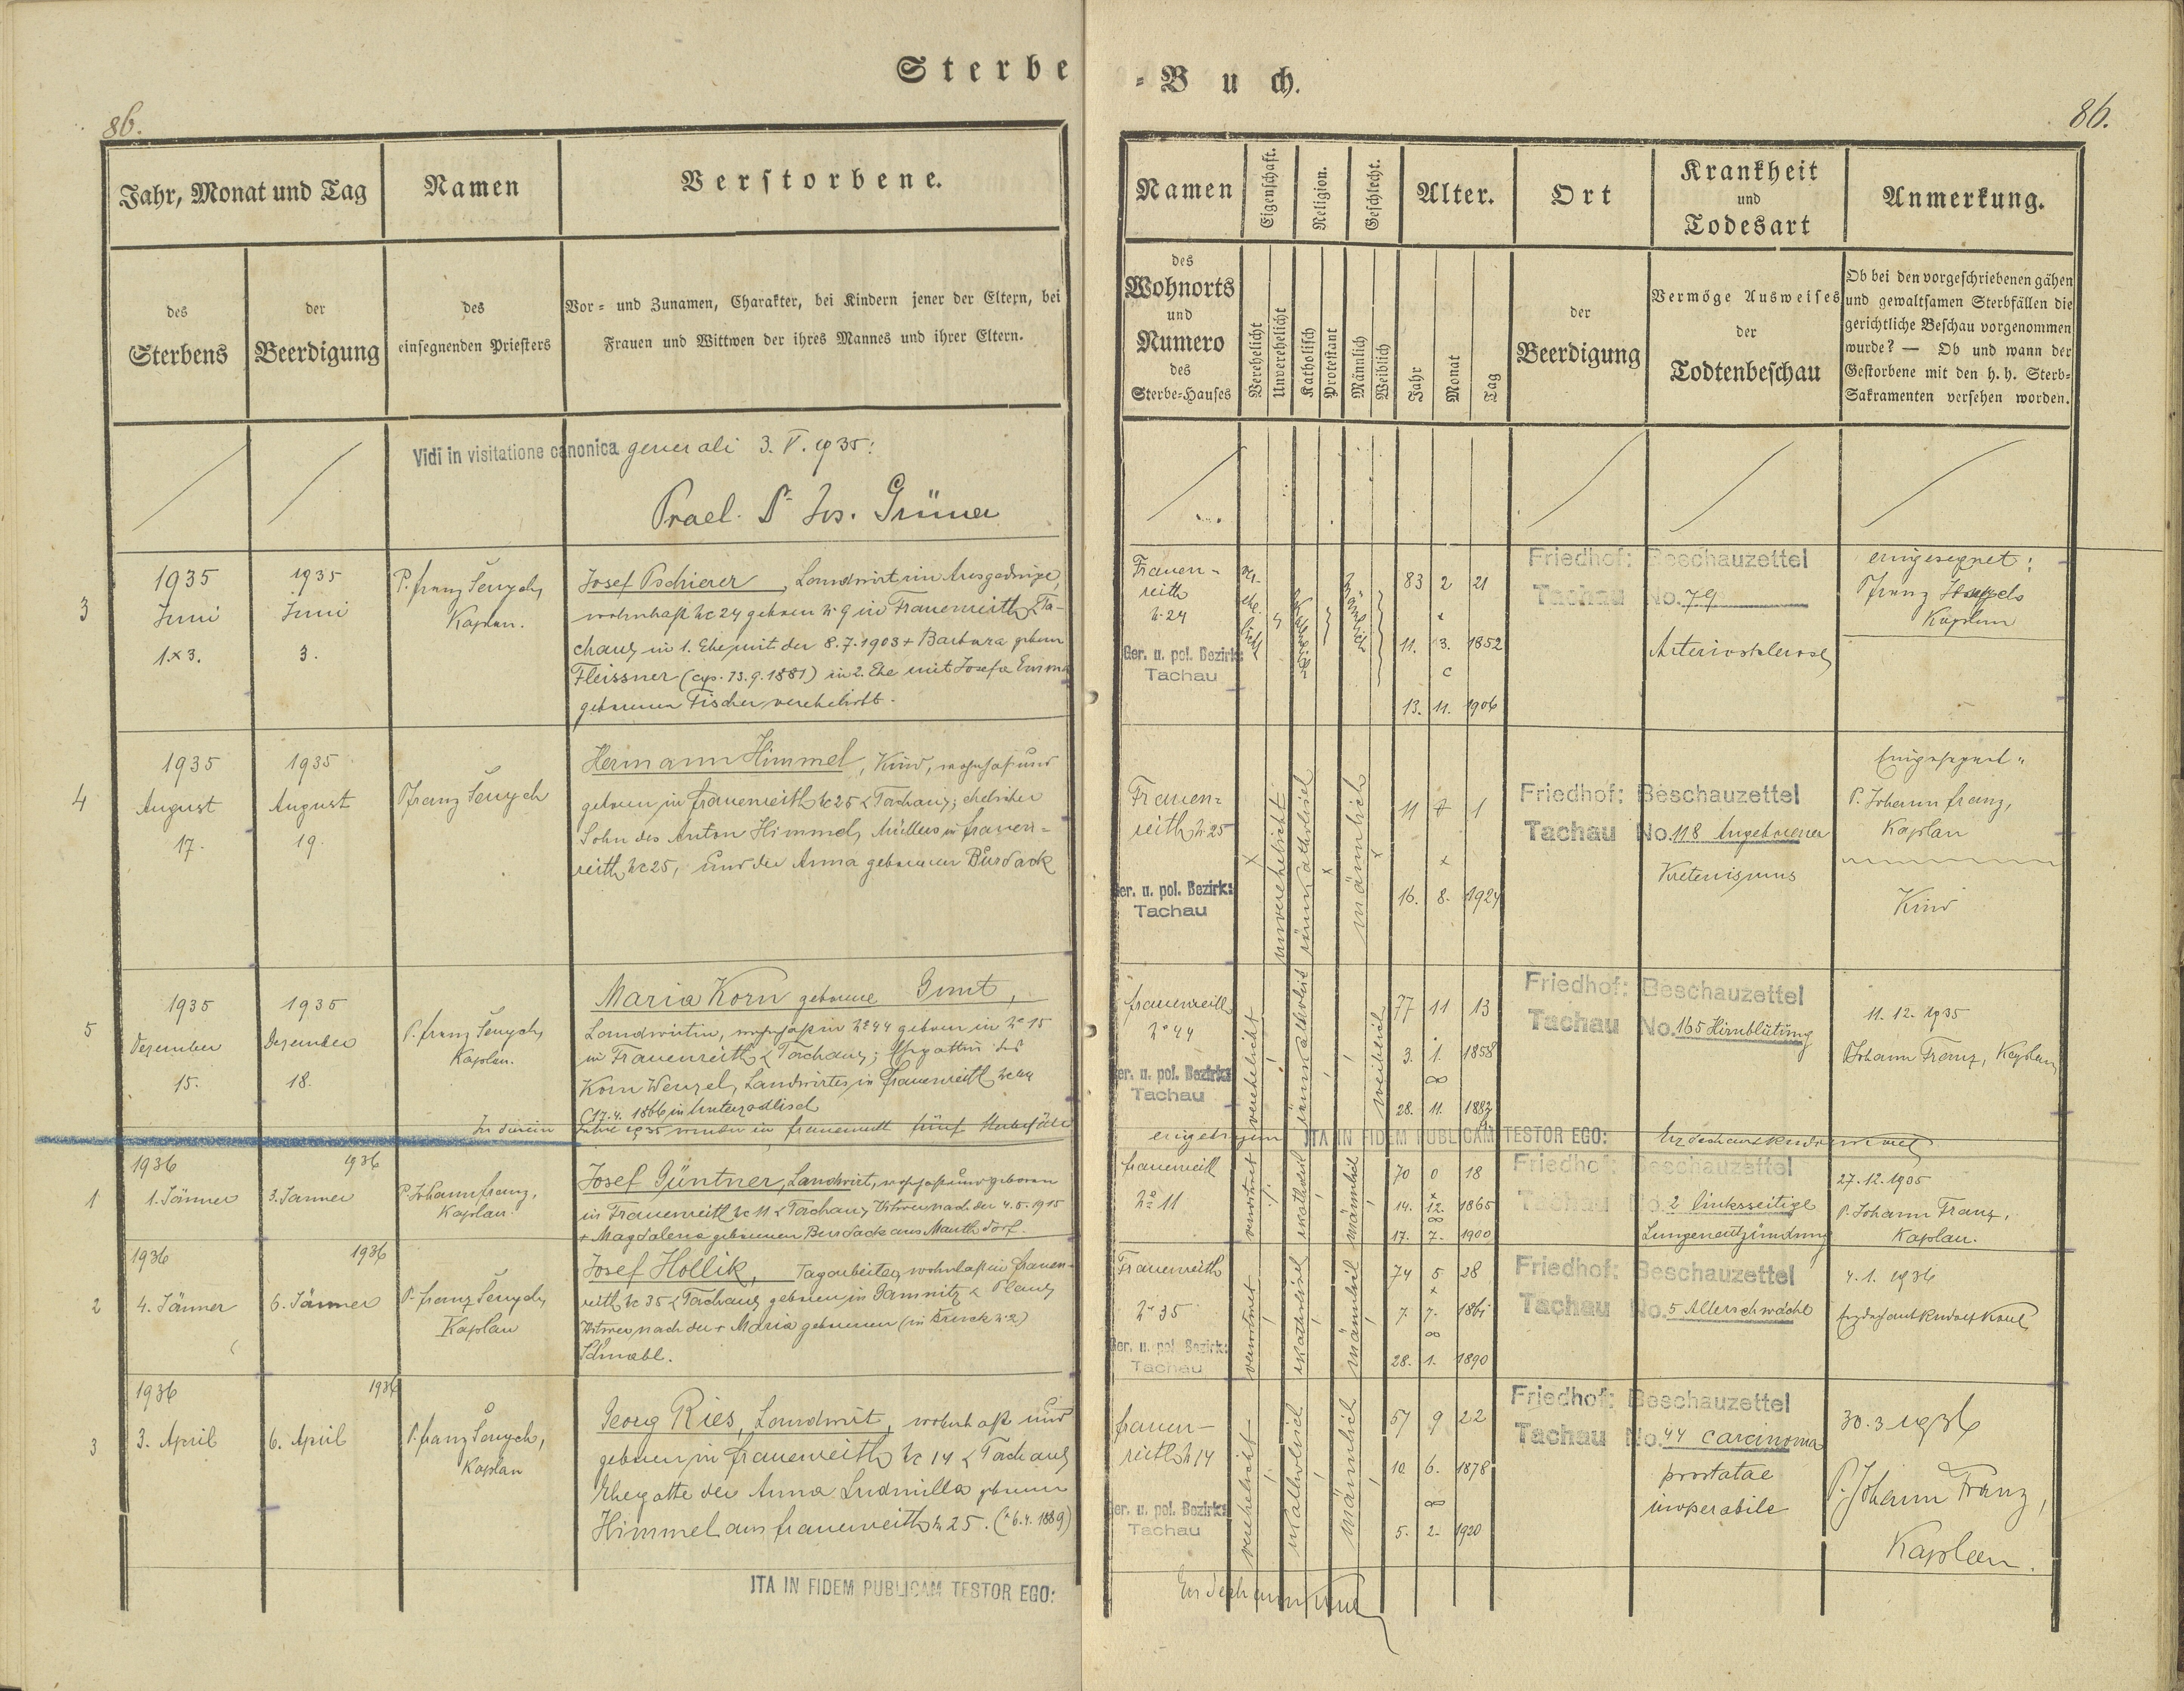 Sterbe
86.
Jahr, Monat und Tag
Namen
Verstorbene.
des
Sterbens
der
Beerdigung
des
einsegnenden Priesters
Vor- und Zunamen, Charakter, bei Kindern jener der Eltern, bei
Frauen und Wittwen der ihres Mannes und ihrer Eltern.
Vidi in visitatione canonica generali 3. V. 1935:
Prael. Jos. Grüner
3
1935
Juni
1. x 3.
1935
Juni
3.
P. Franz
Kaplan.
Josef Pschierer, Landwirt im Ausgedinge,
wohnhaft Nc 24 geboren N. 9 in Frauenreith, Ta-
chau, in 1. Ehe mit der 8.7.1903 + Barbara geboren
Fleissner (cop. 13.9.1881) in 2. Ehe mit Josefa Emma
geborenen Fischer verehelicht.
4
1935
August
17.
1935
August
19.
P Franz
Hermann Himmel, Kind, wohnhaft und
geboren in Frauenreith Nc 25 Tachau; ehelicher
Sohn des Anton Himmel, Müllers in Frauen-
reith Nc 25, und der Anna geborenen Bursack
5
1935
Dezember
15.
1935
Dezember
18.
P. Franz
Kaplan.
Maria Korn geborene
Landwirtin, wohnhaft in No 44 geboren in No 15
in Frauenreith Tachau; Ehegattin des
Korn Wenzel, Landwirtes in Frauenreith Nc 44
(17.4. 1866 in
Im
Jahre 1935 wurden in Frauenreith fünf Sterbefälle
1
1936
1. Jänner
1936
3. Jänner
P. Johann Franz,
Kaplan.
Josef Güntner, Landwirt, wohnhaft und geboren
in Frauenreith Nc 11 Tachau, Witwer nach der 4.5.1915
+ Magdalena geborenen Bursack aus Mauthdorf.
2
1936
4. Jänner
1936
6. Jänner
P. Franz
Kaplan
Josef Hollik, Tagarbeiter, wohnhaft in Frauen-
reith Nc 35 Tachau, geboren in Gamnitz Plan,
Witwer nach der + Maria geborenen (in N. 2)
Schnabl.
3
1936
3. April
1936
6. April
P. Franz
Kaplan
Georg Ries, Landwirt, wohnhaft und
geboren in Frauenreith Nc 14 Tachau,
Ehegatte der Anna Ludmilla geboren
Himmel aus Frauenreith N 25. (* 6.4. 1889)
JTA IN FIDEM PUBLICAM TESTOR EGO:
-Buch.
86.
Namen
Eigenschaft.
Religion.
Geschlecht.
Alter.
Ort
Krankheit
und
Todesart
Anmerkung.
des
Wohnorts
und
Numero
des
Sterbe-Hauses
Verehelicht
Unverehelicht
Katholisch
Protestant
Männlich
Weiblich
Jahr
Monat
Tag
der
Beerdigung
Vermöge Ausweises
der
Todtenbeschau
Ob bei den vorgeschriebenen gähen
und gewaltsamen Sterbfällen die
gerichtliche Beschau vorgenommen
wurde? — Ob und wann der
Gestorbene mit den h. h. Sterb-
Sakramenten versehen worden.
Frauen-
reith
N. 24
Ger. u. pol. Bezirk:
Tachau
ver-
ehe-
licht
männlich
83 2 21
11. 3. 1852
13. 11. 1906
Friedhof:
Tachau
Beschauzettel
No. 79
Arteriosklerose
eingesegnet:
P Franz
Kaplan
Frauen-
reith N. 25
Ger. u. pol. Bezirk:
Tachau
unverehelicht
römisch katholisch
männlich
11 7 1
x
16. 8. 1924
Friedhof:
Tachau
Beschauzettel
No. 118 Angeborener
Kretenismus
Eingesegnet:
P. Johann Franz,
Kaplan
Kind
Frauenreith
No 44
Ger. u. pol. Bezirk:
Tachau
verehelicht
römisch katholisch
weiblich
77 11 13
3. 1. 1858
∞
28. 11. 1882
Friedhof:
Tachau
Beschauzettel
No. 165 Hirnblutung
11. 12. 1935
P Johann Franz, Kaplan
eingetragen
JTA IN FIDEM PUBLICAM TESTOR EGO:
Frauenreith
No 11
verwitwet
r. katholisch
männlich
70 0 18
x
14. 12. 1865
∞
17. 7. 1900
Friedhof:
Tachau
Beschauzettel
No. 2 linksseitige
Lungenentzündung
27. 12. 1905
P. Johann Franz,
Kaplan.
Frauenreith
No 35
Ger. u. pol. Bezirk:
Tachau
verwitwet
r. katholisch
männlich
74 5 28
x
7. 7. 1861
∞
28. 1. 1890
Friedhof:
Tachau
Beschauzettel
No. 5 Altersschwäche
4. 1. 1936
Erzdechant Rudolf
Frauen-
reith N 14
Ger. u. pol. Bezirk:
Tachau
verehelicht
r. katholisch
männlich
57 9 22
10. 6. 1878
∞
5. 2. 1920
Friedhof:
Tachau
Beschauzettel
No. 44 carcinoma
prostatae
inoperabile
30. 3 1936
P. Johann Franz,
Kaplan.
Erzdechant